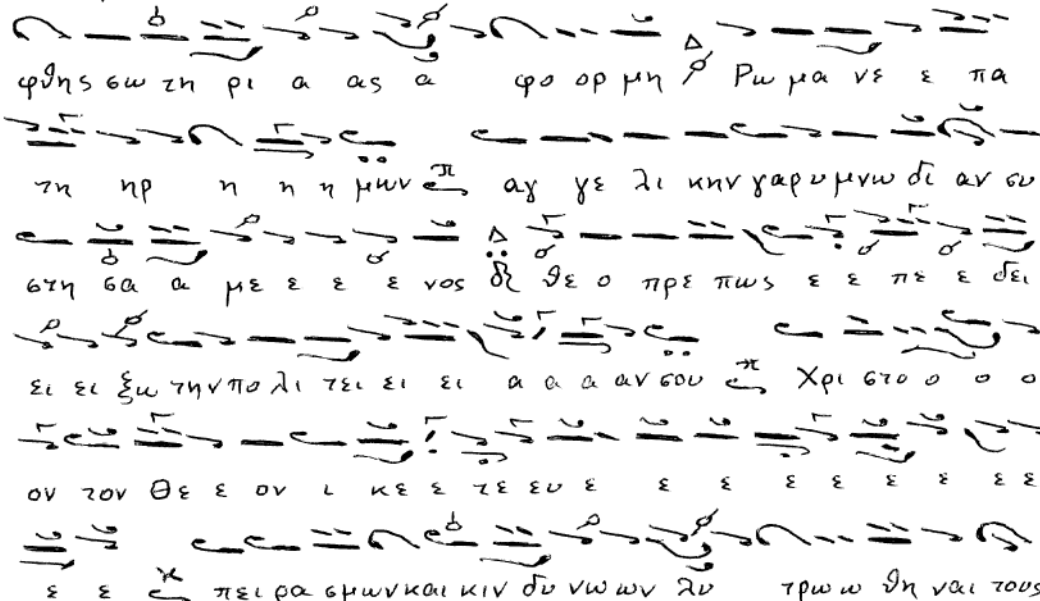 φθης σω τη ρι α ας α φο ορ μη Ρω μα νε ε πα
τη ηρ η η η μων αγ γε λι κην γαρ υ μνω δι αν συ
στη σα α με ε ε ε νος θε ο πρε πως ε ε πε ε δει
ει ει ξω την πο λι τει ει ει α α α αν σου Χρι στο ο ο ο
ον τον Θε ε ον ι κε ε τε ευ ε ε ε ε ε ε ε ε ε
ε ε πει ρα σμων και κιν δυ νω ων λυ τρω ω θη ναι τους